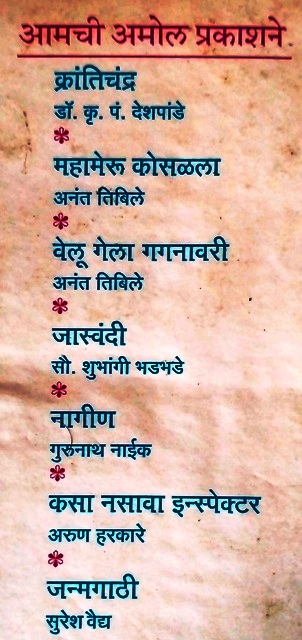 आमची अमोल प्रकाशने
क्रांतिचंद्र
डॉ. कृ. पं. देशपांडे
महामेरू कोसळला
अनंत तिबिले
वेलू गेला गगनावरी
अनंत तिबिले
जास्वंदी
सौ. शुभांगी भडभडे
नागीण
गुरुनाथ नाईक
कसा नसावा इन्स्पेक्टर
अरुण हरकारे
जन्मगाठी
सुरेश वैद्य